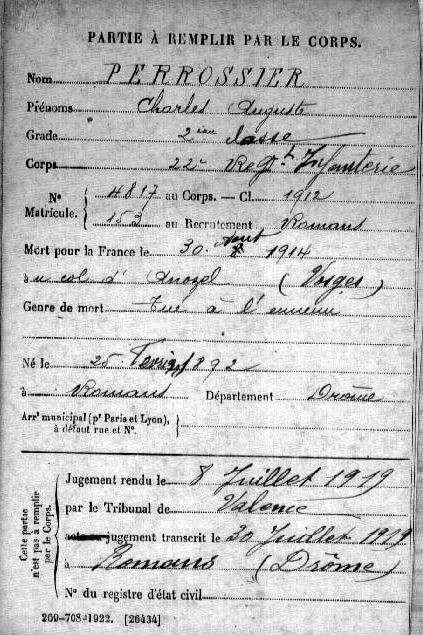 PARTIE À REMPLIR PAR LE CORPS.
Nom PERROSSIER
Prénoms Charles Auguste
Grade 2ème classe
Corps 22e Regt Infanterie
N° Matricule. { 4817 au Corps. — Cl. 1912
153 au Recrutement Romans
Mort pour la France le 30 Aout 1914
à u col d'Anozel (Vosges)
Genre de mort Tué à l'ennemi
Né le 25 Fevrier 1892
à Romans Département Drôme
Arrt municipal (pr Paris et Lyon),
à défaut rue et N°.
Cette partie n'est pas à remplir par le Corps.
Jugement rendu le 8 Juillet 1919
par le Tribunal de Valence
jugement transcrit le 30 Juillet 1919
à Romans (Drôme)
N° du registre d'état civil
269-708-1922. [26434]